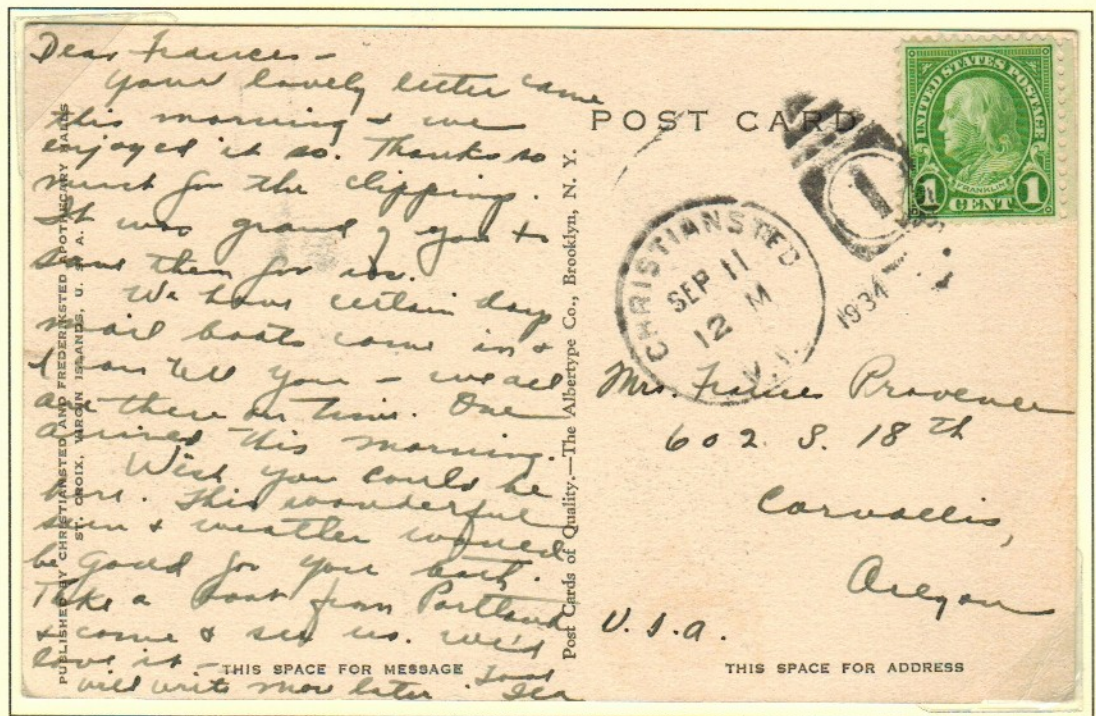 Dear Frances -
Your lovely letter came
this morning & we
enjoyed it so. Thanks so
much for the clippings.
It was grand of you to
save them for us.
We have certain days
mail boats come in &
I can tell you - we all
are there on time. One
arrived this morning.
Wish you could be
here. This wonderful
sun & weather would
be good for you both.
Take a boat from Portland
& come & see us. We'd
love it -
will write more later.
PUBLISHED BY CHRISTIANSTED AND FREDERIKSTED APOTHECARY HALLS
ST. CROIX, VIRGIN ISLANDS, U. S. A.
THIS SPACE FOR MESSAGE
Post Cards of Quality.—The Albertype Co., Brooklyn, N. Y.
POST CARD
CHRISTIANSTED
SEP 11
12 M
V.I.
1934
1
UNITED STATES POSTAGE
FRANKLIN
1 CENT 1
Mrs. Frances Provence
602 S. 18th
Corvallis,
Oregon
U.S.A.
THIS SPACE FOR ADDRESS